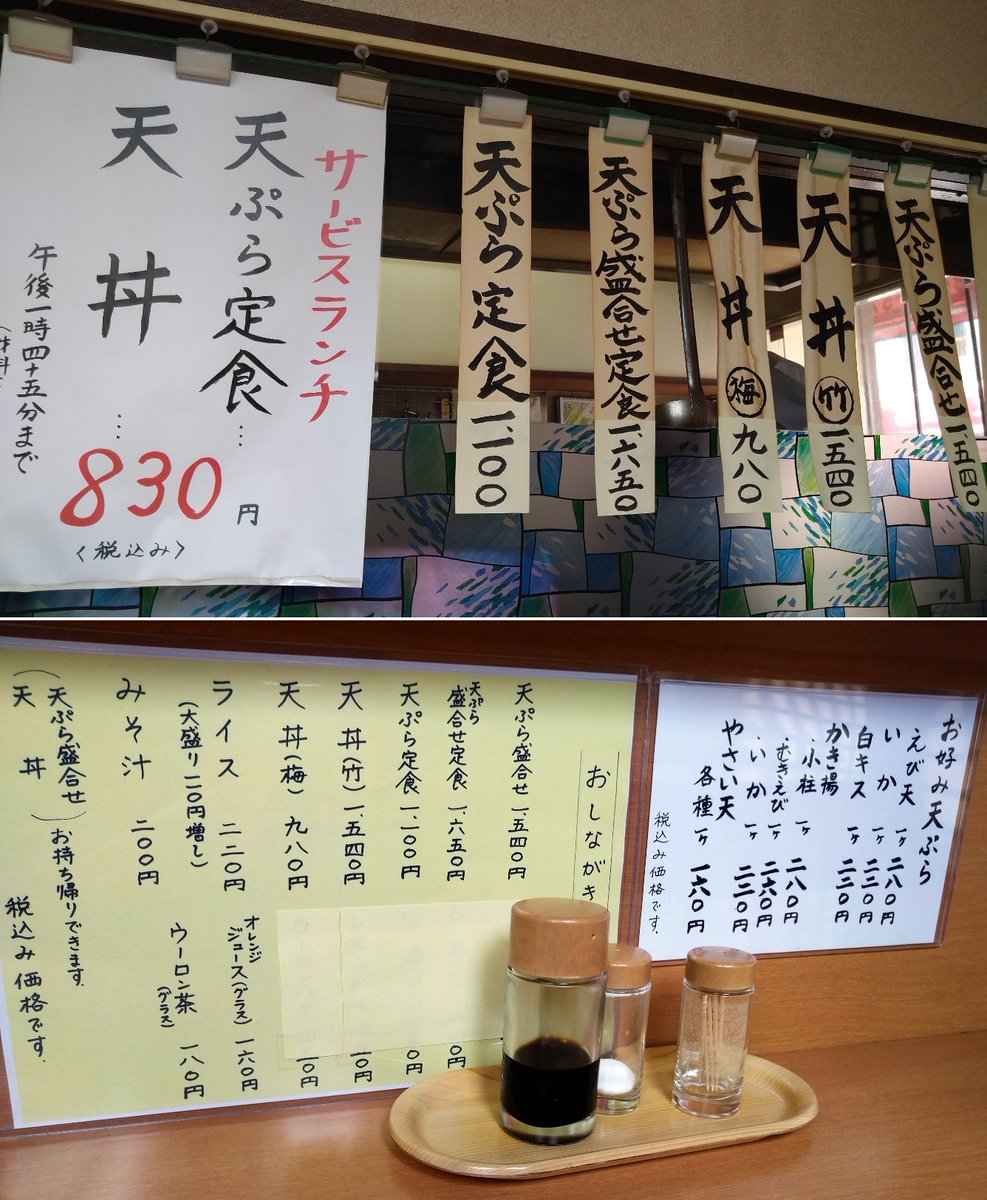 サービスランチ
天ぷら定食…
天丼…
830円
〈税込み〉
午後一時四十五分まで
天ぷら定食 一、一〇〇
天ぷら盛合せ定食 一、六五〇
天丼 梅 九八〇
天丼 竹 一、五四〇
天ぷら盛合せ 一、五四〇
お好み天ぷら
えび天 一ヶ 二八〇円
いか 一ヶ 二二〇円
白キス 一ヶ 二二〇円
かき揚
・小柱 一ヶ 二八〇円
・むきえび 一ヶ 二六〇円
・いか 一ヶ 二二〇円
やさい天
各種 一ヶ 一六〇円
税込み価格です。
おしながき
天ぷら盛合せ 一、五四〇円
天ぷら盛合せ定食 一、六五〇円
天ぷら定食 一、一〇〇円
天丼(竹) 一、五四〇円
天丼(梅) 九八〇円
ライス 二二〇円
(大盛り一一〇円増し)
みそ汁 二〇〇円
オレンジジュース(グラス) 一六〇円
ウーロン茶(グラス) 一八〇円
(天ぷら盛合せ
天丼)お持ち帰りできます。
税込み価格です。